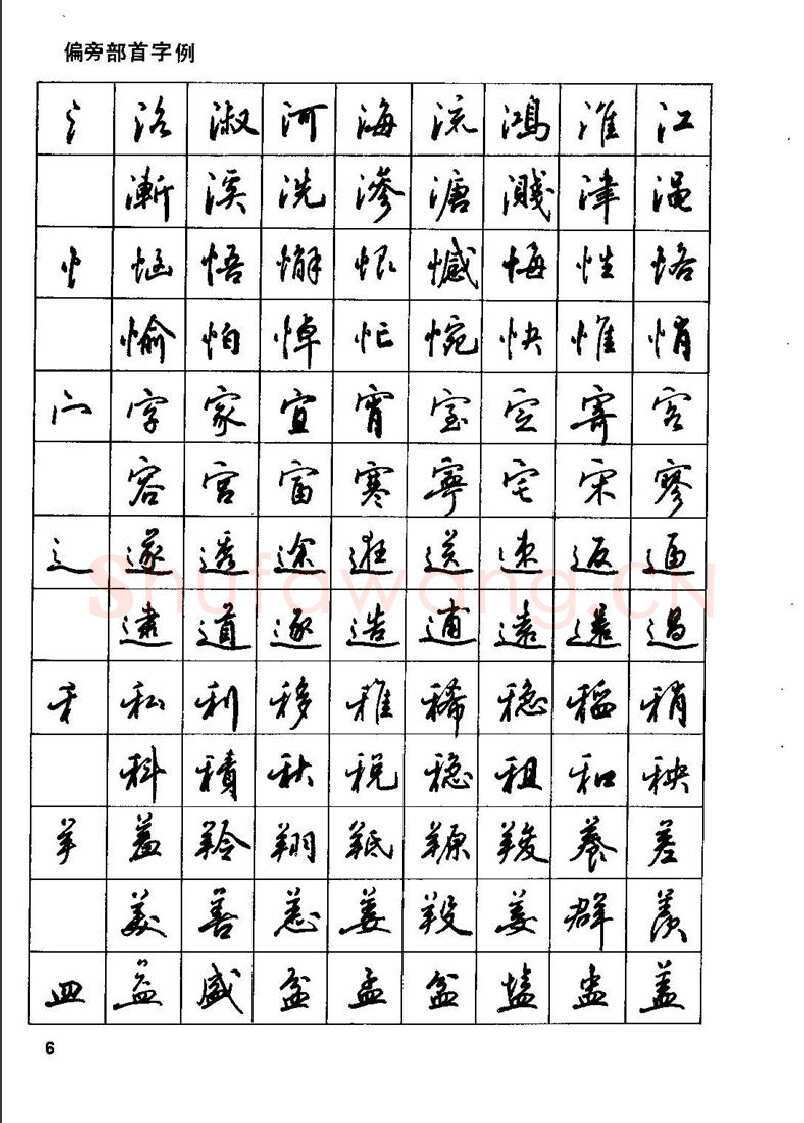 偏旁部首字例
氵 洛 淑 河 海 流 鸿 淮 江
渐 溪 洗 渗 溏 溅 津 渑
忄 悟 懈 恨 憾 悔 性 恪
愉 怕 悼 忙 惋 快 惟 悄
宀 字 家 宜 宵 室 定 寄 客
容 宫 富 寒 寧 宅 宋 寥
辶 遂 透 途 逛 送 速 返 逼
逮 道 逐 造 逋 遠 還 過
禾 私 利 移 稚 稀 稳 稻 稍
科 積 秋 税 稳 租 和 秧
羊 羔 羚 翔 羝 羱 羧 養 差
美 善 恙 姜 羖 姜 群 羡
皿 益 盛 盆 孟 盆 盐 盅 盖
Shufawang.CN
6